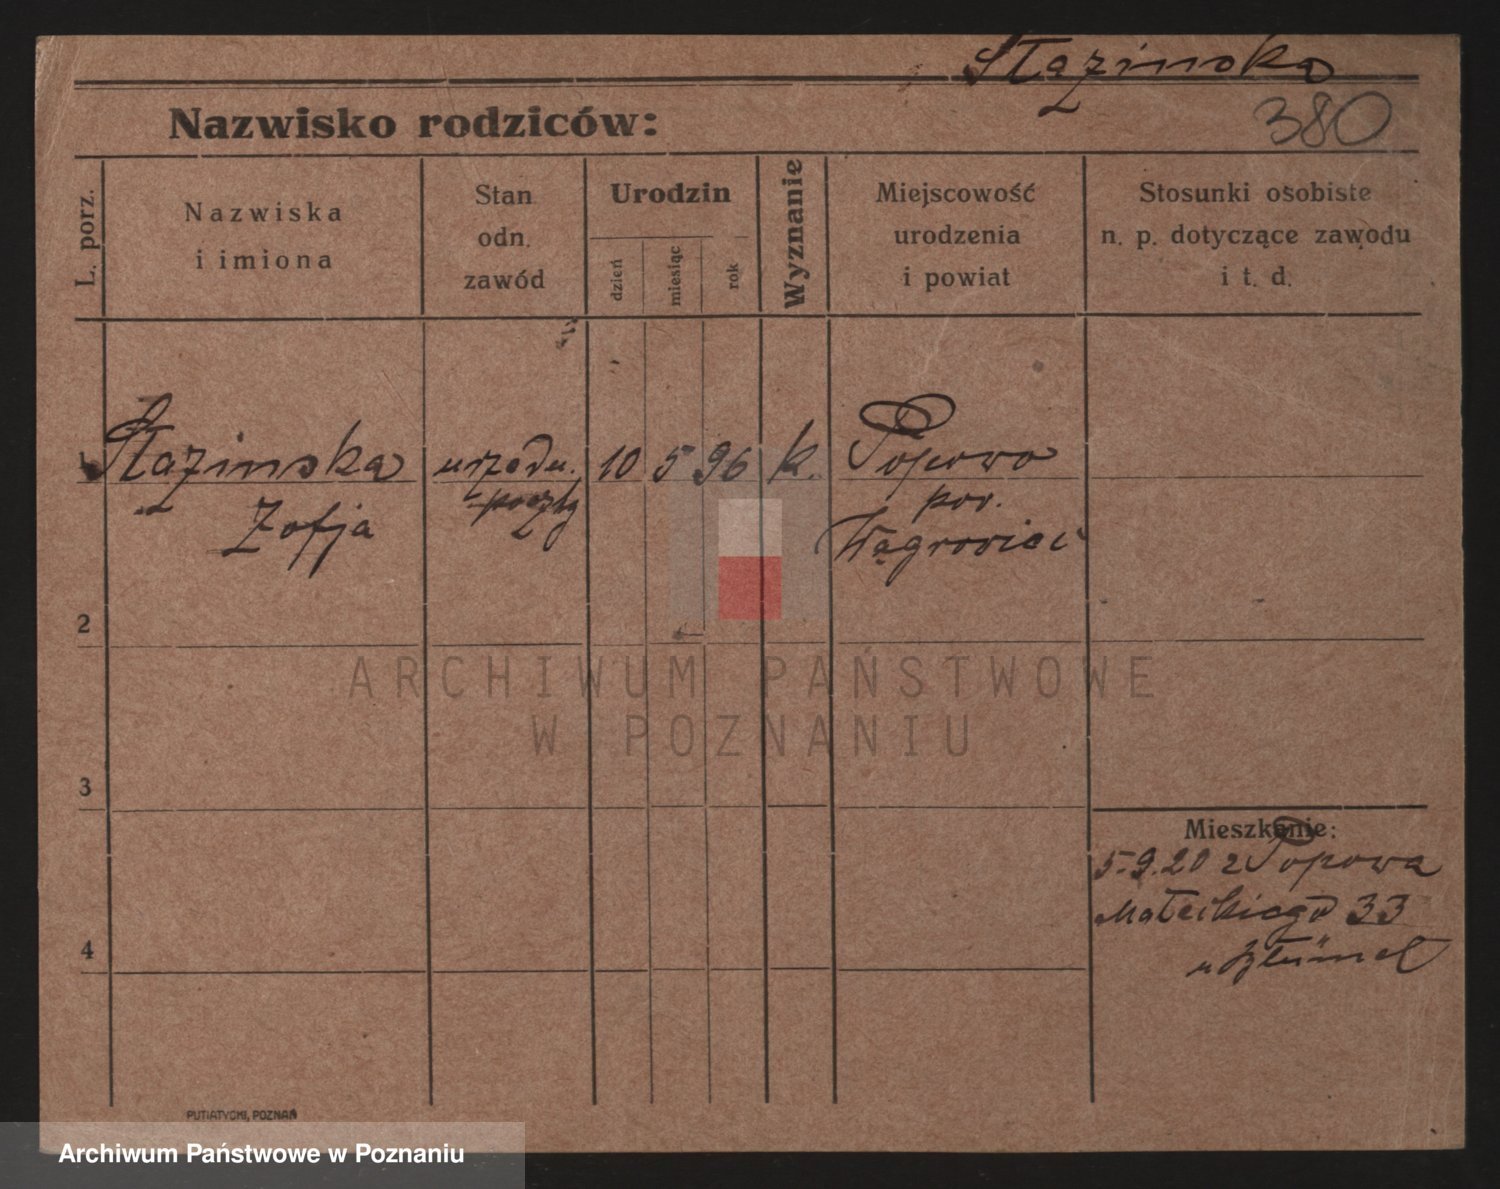 Stazinska
380
Nazwisko rodziców:
L. porz.
Nazwiska
i imiona
Stan
odn.
zawód
Urodzin
dzień
miesiąc
rok
Wyznanie
Miejscowość
urodzenia
i powiat
Stosunki osobiste
n. p. dotyczące zawodu
i t. d.
1 Stazinska urzędn. 10 5 96 k. Popowo
Zofja poczty pow.
Wągrowiec
2
3
4
Mieszkanie:
5.9.20 z Popowa
Małeckiego 33
u
PUTIATYCKI, POZNAŃ
ARCHIWUM PAŃSTWOWE
W POZNANIU
Archiwum Państwowe w Poznaniu